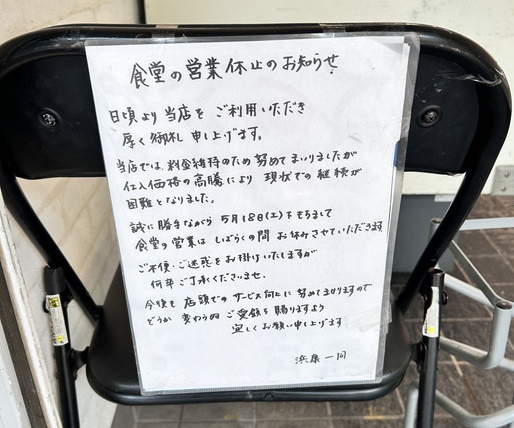 食堂の営業休止のお知らせ
日頃より当店をご利用いただき
厚く御礼申し上げます。
当店では、料金維持のため努めてまいりましたが
仕入価格の高騰により 現状での継続が
困難となりました。
誠に勝手ながら 5月18日(土)をもちまして
食堂の営業は しばらくの間 お休みさせていただきます
ご不便・ご迷惑をお掛けいたしますが
何卒ご了承くださいませ。
今後も店頭でのサービス向上に努めて参りますので
どうか 変わらぬ ご愛顧を賜りますよう
宜しくお願い申し上げます
浜康一同